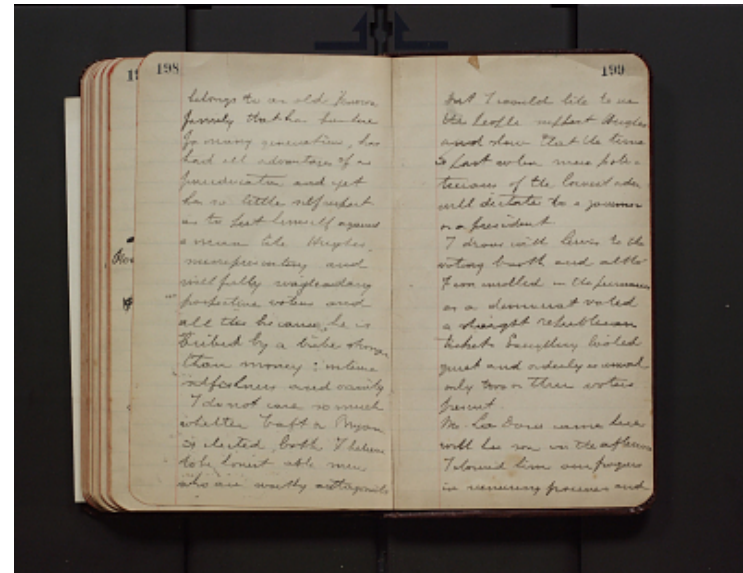 198
belongs to an old known
family that has been here
for many generations, has
had all advantages of a
fine education and yet
has so little self respect
as to set himself against
a man like Hughes,
misrepresenting and
willfully misleading
prospective voters and
all this because he is
bribed by a bribe stronger
than money: intense
selfishness and vanity
I do not care so much
whether Taft or Bryan
is elected, both I believe
to be honest able men
who are worthy antagonists
199
but I would like to see
the people support Hughes
and show that the time
is past when mere pole-
ticians of the lowest order
will dictate to a governor
or a president
I drove with Lewis to the
voting booth and altho
I am enrolled in the primaries
as a democrat voted
a straight republican
ticket. Everything looked
quiet and orderly as usual
only two or three voters
present.
Mr. La Dows came here
with his son in the afternoon
I showed him our progress
in removing frames and